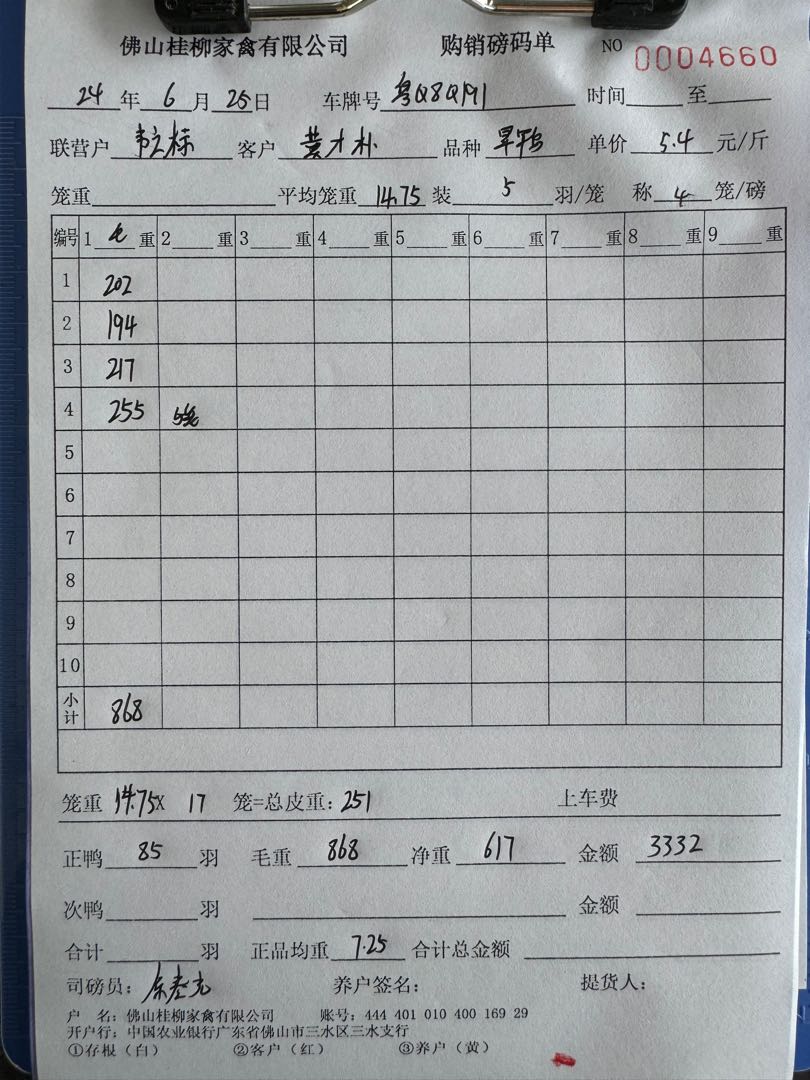 佛山桂柳家禽有限公司 购销磅码单 NO 0004660
24 年 6 月 25 日 车牌号 粤Q8Q191 时间 至
联营户 韦立标 客户 品种 旱鸭 单价 5.4 元/斤
笼重 平均笼重 14.75 装 5 羽/笼 称 4 笼/磅
编号 1 毛 重 2 重 3 重 4 重 5 重 6 重 7 重 8 重 9 重
1 202
2 194
3 217
4 255 5笼
5
6
7
8
9
10
小计 868
笼重 14.75 X 17 笼=总皮重: 251 上车费
正鸭 85 羽 毛重 868 净重 617 金额 3332
次鸭 羽 金额
合计 羽 正品均重 7.25 合计总金额
司磅员: 养户签名: 提货人:
户 名: 佛山桂柳家禽有限公司 账号: 444 401 010 400 169 29
开户行: 中国农业银行广东省佛山市三水区三水支行
①存根(白) ②客户(红) ③养户(黄)